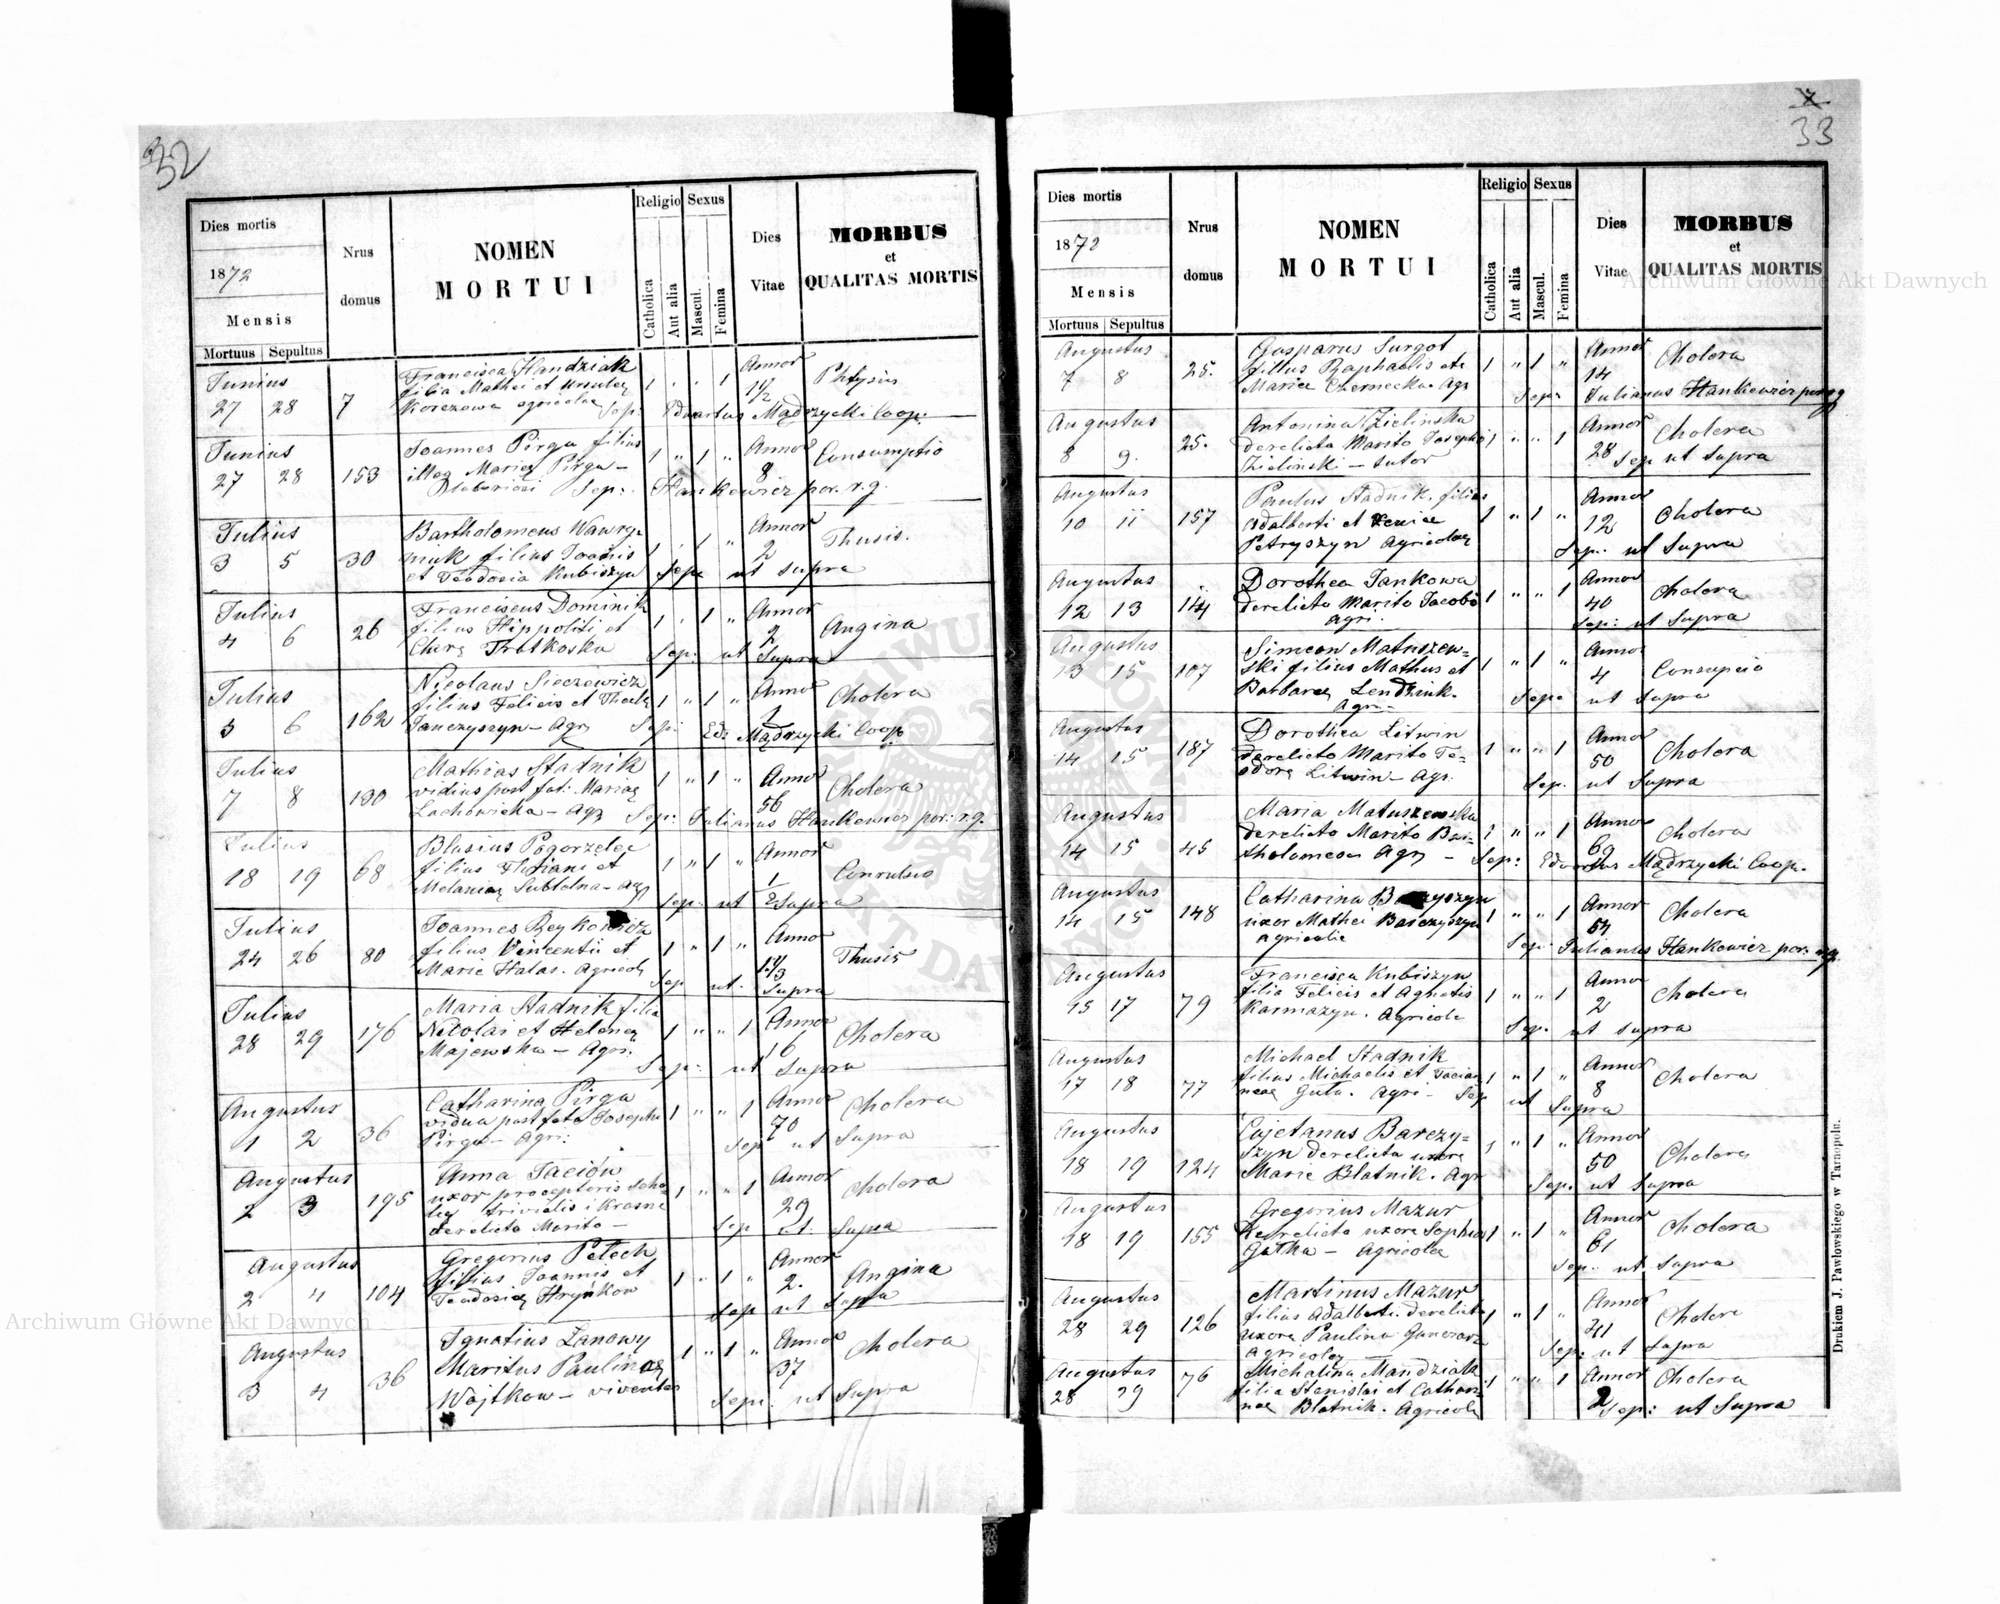 32
Dies mortis
1872
Mensis
Mortuus Sepultus
Nrus domus
NOMEN
MORTUI
Religio
Catholica
Aut alia
Sexus
Mascul.
Femina
Dies Vitae
MORBUS
et
QUALITAS MORTIS
Junius Francisca Handziak Annor
filia Mathei et 1 " " 1 1/2 Phtysis
27 28 7 agricolae Sep: Eduardus Mądrzycki Coop.
Junius Joannes Pirga filius Annor
27 28 153 illeg Mariae Pirga 1 " 1 " 8 Consumptio
Sep: Hankewicz par. r. g.
Julius Bartholomeus Wawry- Annor
3 5 30 niuk filius Joannis 1 " 1 " 2 Thusis.
et Teodosia Kubiszyn Sep: ut supra
Julius Franciscus Dominik Annor
4 6 26 filius Hippoliti et 1 " 1 " 2 Angina
Sep: ut Supra
Julius Nicolaus Sieczewicz Annor
5 6 162 filius Felicis et 1 " 1 " 1 Cholera
Janczyszyn - Agr Sep: Ed: Mądrzycki Coop
Julius Mathias Stadnik Annor
7 8 130 vidius post fat: Mariae 1 " 1 " 56 Cholera
Lachowicka - Agr Sep: Julianus Hankewicz par: r. g.
Julius Blasius Pogorzelec Annor
18 19 68 filius et 1 " 1 " 1/2
Melania - Agr Sep: ut Supra
Julius Joannes Annor
24 26 80 filius Vincentii et 1 " 1 " Thusis
Marie Halas. Agricola Sep ut. Supra
Julius Maria Stadnik filia Annor
28 29 176 Nicolai et Helenae 1 " " 1 16 Cholera
Majewska - Agri. Sep: ut Supra
Augustus Catharina Pirga Annor
1 2 36 vidua post fata Josephi 1 " " 1 70 Cholera
Pirga - Agri: Sep ut Supra
Augustus Anna Annor
2 3 195 uxor preceptoris scho- 1 " " 1 29 Cholera
lae trivialis i Krasne
derelicta Marito - Sep ut. Supra
Augustus Gregorius Petech Annor
2 4 104 filius Joannis et 1 " 1 " 2. Angina
Teodosiae Hrynkow Sep ut Supra
Augustus Ignatius Zanowy Annor
3 4 36 Maritus Paulinae 1 " 1 " 37 Cholera
Wojtkow - viventes Sep: ut Supra
33
Dies mortis
1872
Mensis
Mortuus Sepultus
Nrus domus
NOMEN
MORTUI
Religio
Catholica
Aut alia
Sexus
Mascul.
Femina
Dies Vitae
MORBUS
et
QUALITAS MORTIS
Augustus Gasparus Surgot Annor
7 8 25. filius Raphaelis et 1 " 1 " 14 Cholera
Mariae Czernecka. Agr Sep: Julianus Hankewicz par. r. g.
Augustus Antonina Zielinska Annor
8 9. 25. derelicta Marito Josepho 1 " " 1 28 Cholera
Zielinski - sutor Sep ut Supra
Augustus Paulus Stadnik. filius Annor
10 11 157 Adalberti et Xeniae 1 " 1 " 12 Cholera
Petryszyn Agricolae Sep. ut Supra
Augustus Dorothea Jankowa Annor
12 13 144 derelicta Marito Jacobo 1 " " 1 40 Cholera
Agri. Sep: ut Supra
Augustus Simeon Matuszew- Annor
13 15 107 ski filius Matheus et 1 " 1 " 4
Barbarae Lendziuk.
Agr. Sep: ut Supra
Augustus Dorothea Litwin Annor
14 15 187 derelicto Marito Te- 1 " " 1 50 Cholera
odora Litwin - Agr. Sep. ut Supra
Augustus Maria Matuszewska Annor
14 15 45 derelicto Marito Bar- 1 " " 1 69 Cholera
tholomeo Agr - Sep: Eduardus Mądrzycki Coop.
Augustus Catharina Annor
14 15 148 uxor Mathei Barczyszyn 1 " " 1 64 Cholera
Agricola Sep. Julianus Hankewicz par. r. g.
Augustus Francisca Kubiszyn Annor
15 17 79 filia Felicis et Agnetis 1 " " 1 2 Cholera
Karmazyn. Agricola Sep. ut supra
Augustus Michael Stadnik Annor
17 18 77 filius Michaelis et 1 " 1 " 8 Cholera
Guta. Agri - Sep ut Supra
Augustus Cajetanus Barczy- Annor
18 19 124 szyn derelicta uxore 1 " 1 " 50 Cholera
Marie Blatnik. Agr Sep. ut Supra
Augustus Gregorius Mazur Annor
18 19 155 derelicta uxore Sophia 1 " 1 " 61 Cholera
Gatka - Agricolae Sep. ut Supra
Augustus Martinus Mazur Annor
28 29 126 filius Adalberti. derelicta 1 " 1 " 41 Cholera
uxore Paulina Ganczarz
Agricolae Sep: ut Supra
Augustus Michalina Mandziak Annor Cholera
28 29 76 filia Stanislai et Cathari- 1 " " 1 2
nae Blatnik. Agricola Sep: ut Supra
Drukiem J. Pawłowskiego w Tarnopolu.
Archiwum Główne Akt Dawnych
Archiwum Główne Akt Dawnych
ARCHIWUM GŁÓWNE AKT DAWNYCH